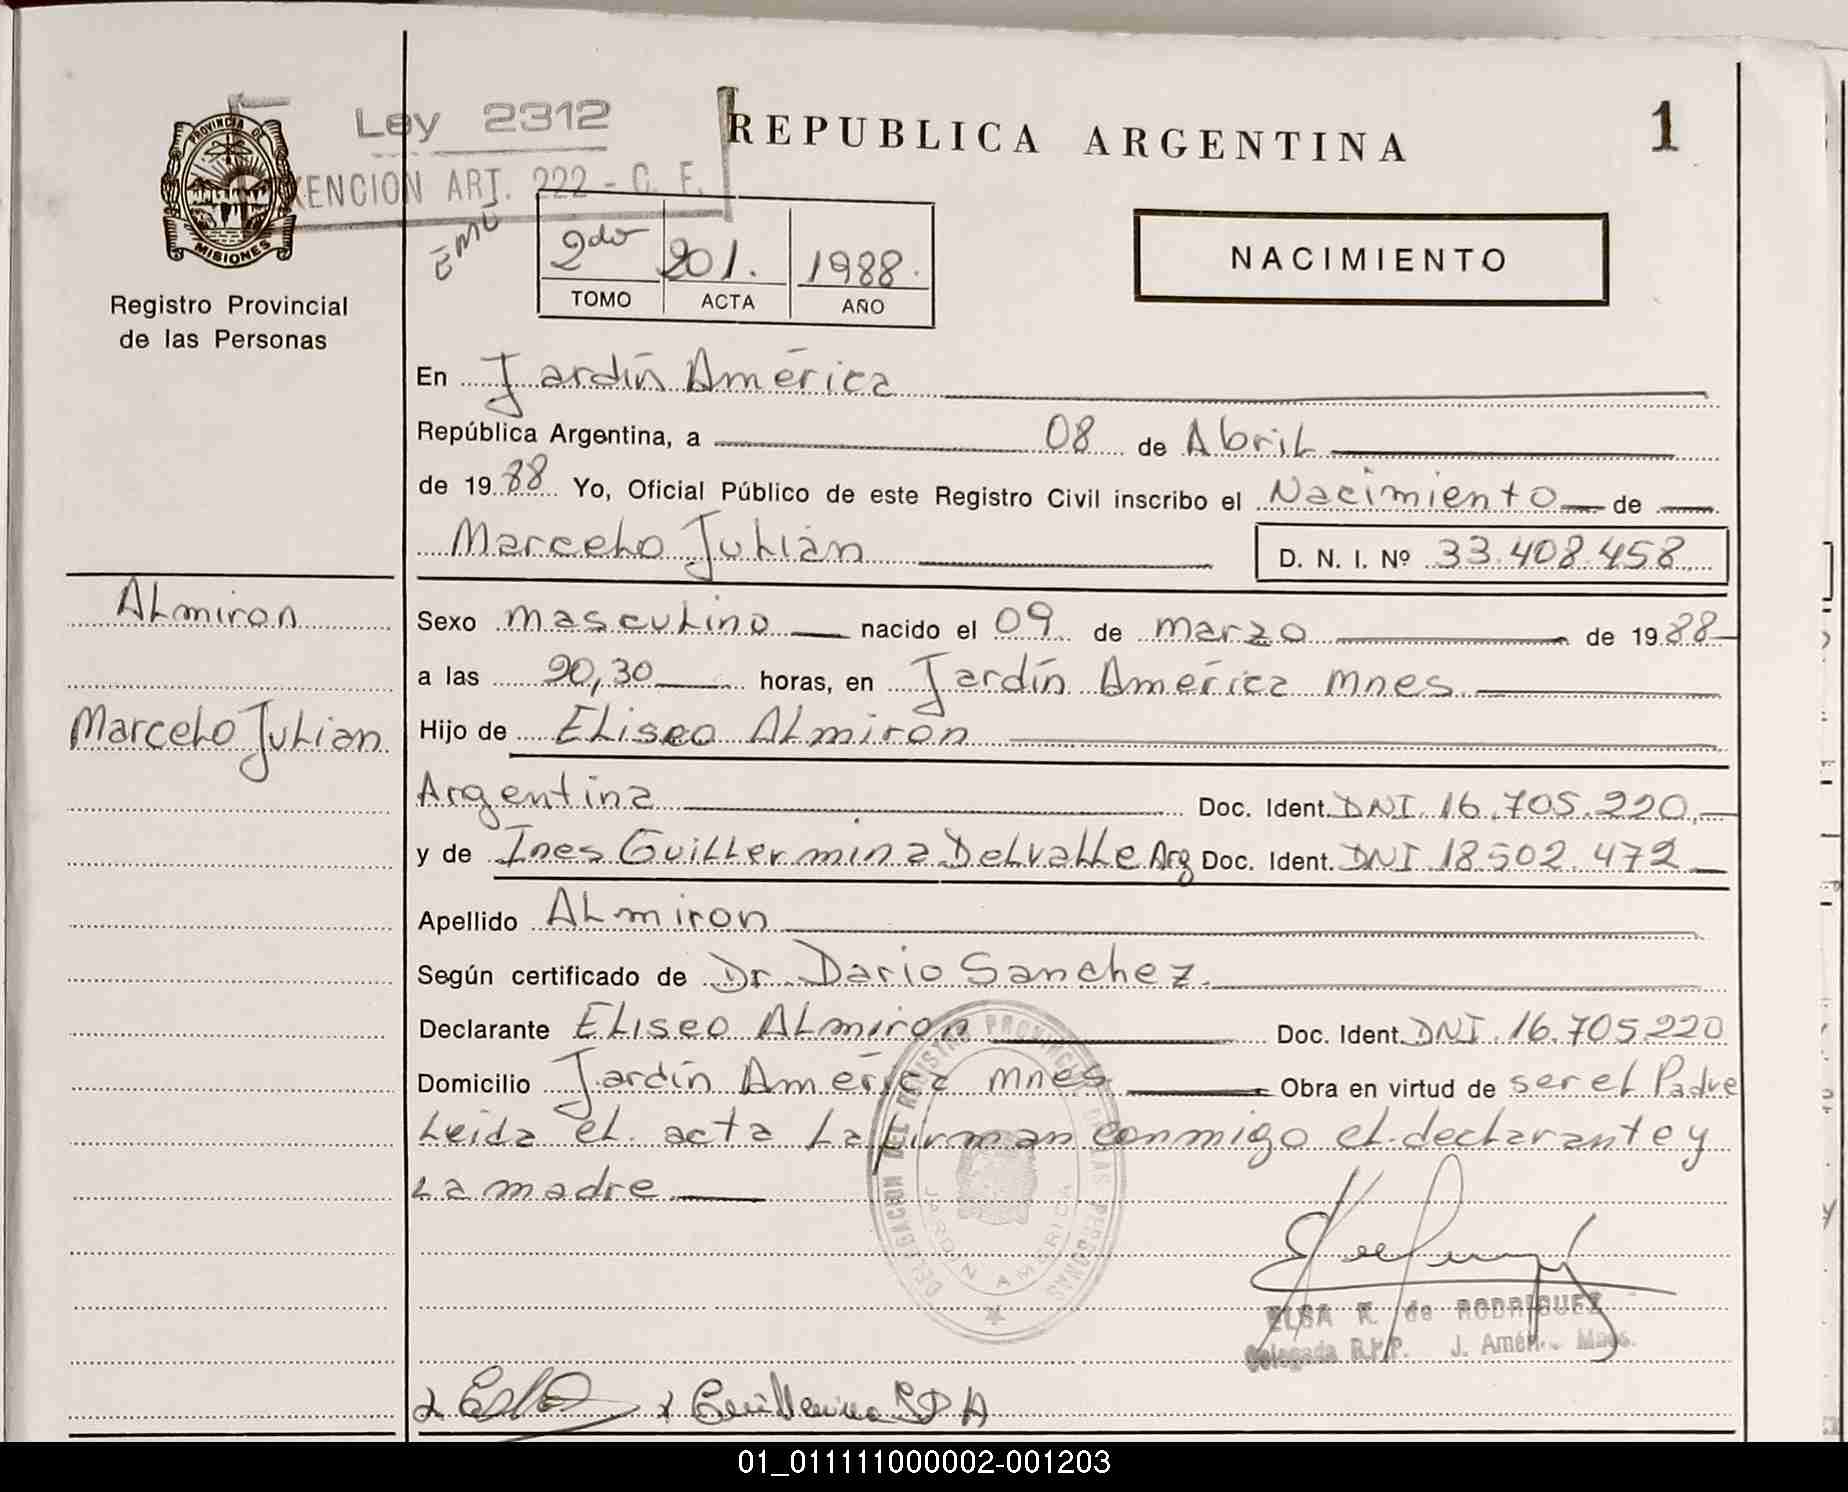 Ley 2312
REPUBLICA ARGENTINA
1
EXENCION ART. 222 - C. F.
PROVINCIA DE
MISIONES
Registro Provincial
de las Personas
2do 201. 1988.
TOMO ACTA AÑO
NACIMIENTO
En Jardín América
República Argentina, a 08 de Abril
de 1988 Yo, Oficial Público de este Registro Civil inscribo el Nacimiento de
Marcelo Julian D. N. I. Nº 33.408.458
Almiron
Marcelo Julian
Sexo masculino nacido el 09 de marzo de 1988
a las 20,30 horas, en Jardín América mnes
Hijo de Eliseo Almiron
Argentina Doc. Ident. DNI 16.705.220,
y de Ines Guillermina Delvalle Arg Doc. Ident. DNI 18.502.472
Apellido Almiron
Según certificado de Dr. Dario Sanchez.
Declarante Eliseo Almiron Doc. Ident. DNI. 16.705220
Domicilio Jardín América mnes Obra en virtud de ser el Padre
Leida el acta la firman conmigo el declarante y
la madre
DELEGACION DEL REGISTRO PROVINCIAL DE LAS PERSONAS
JARDIN AMERICA
ELSA R. de RODRIGUEZ
Delegada R.P.P. J. Amér. Mnes.
01_011111000002-001203